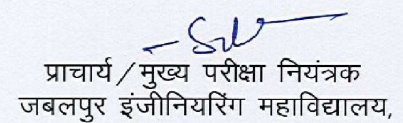 प्राचार्य / मुख्य परीक्षा नियंत्रक
जबलपुर इंजीनियरिंग महाविद्यालय,